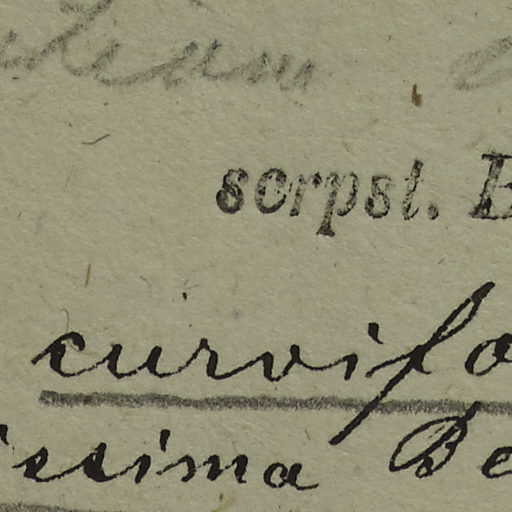 scrpst.
curvifo
issima Be